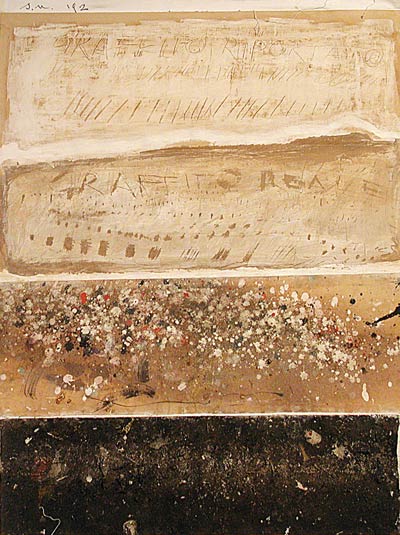 '92
GRAFFITO RIPORTATO
GRAFFITO REALE